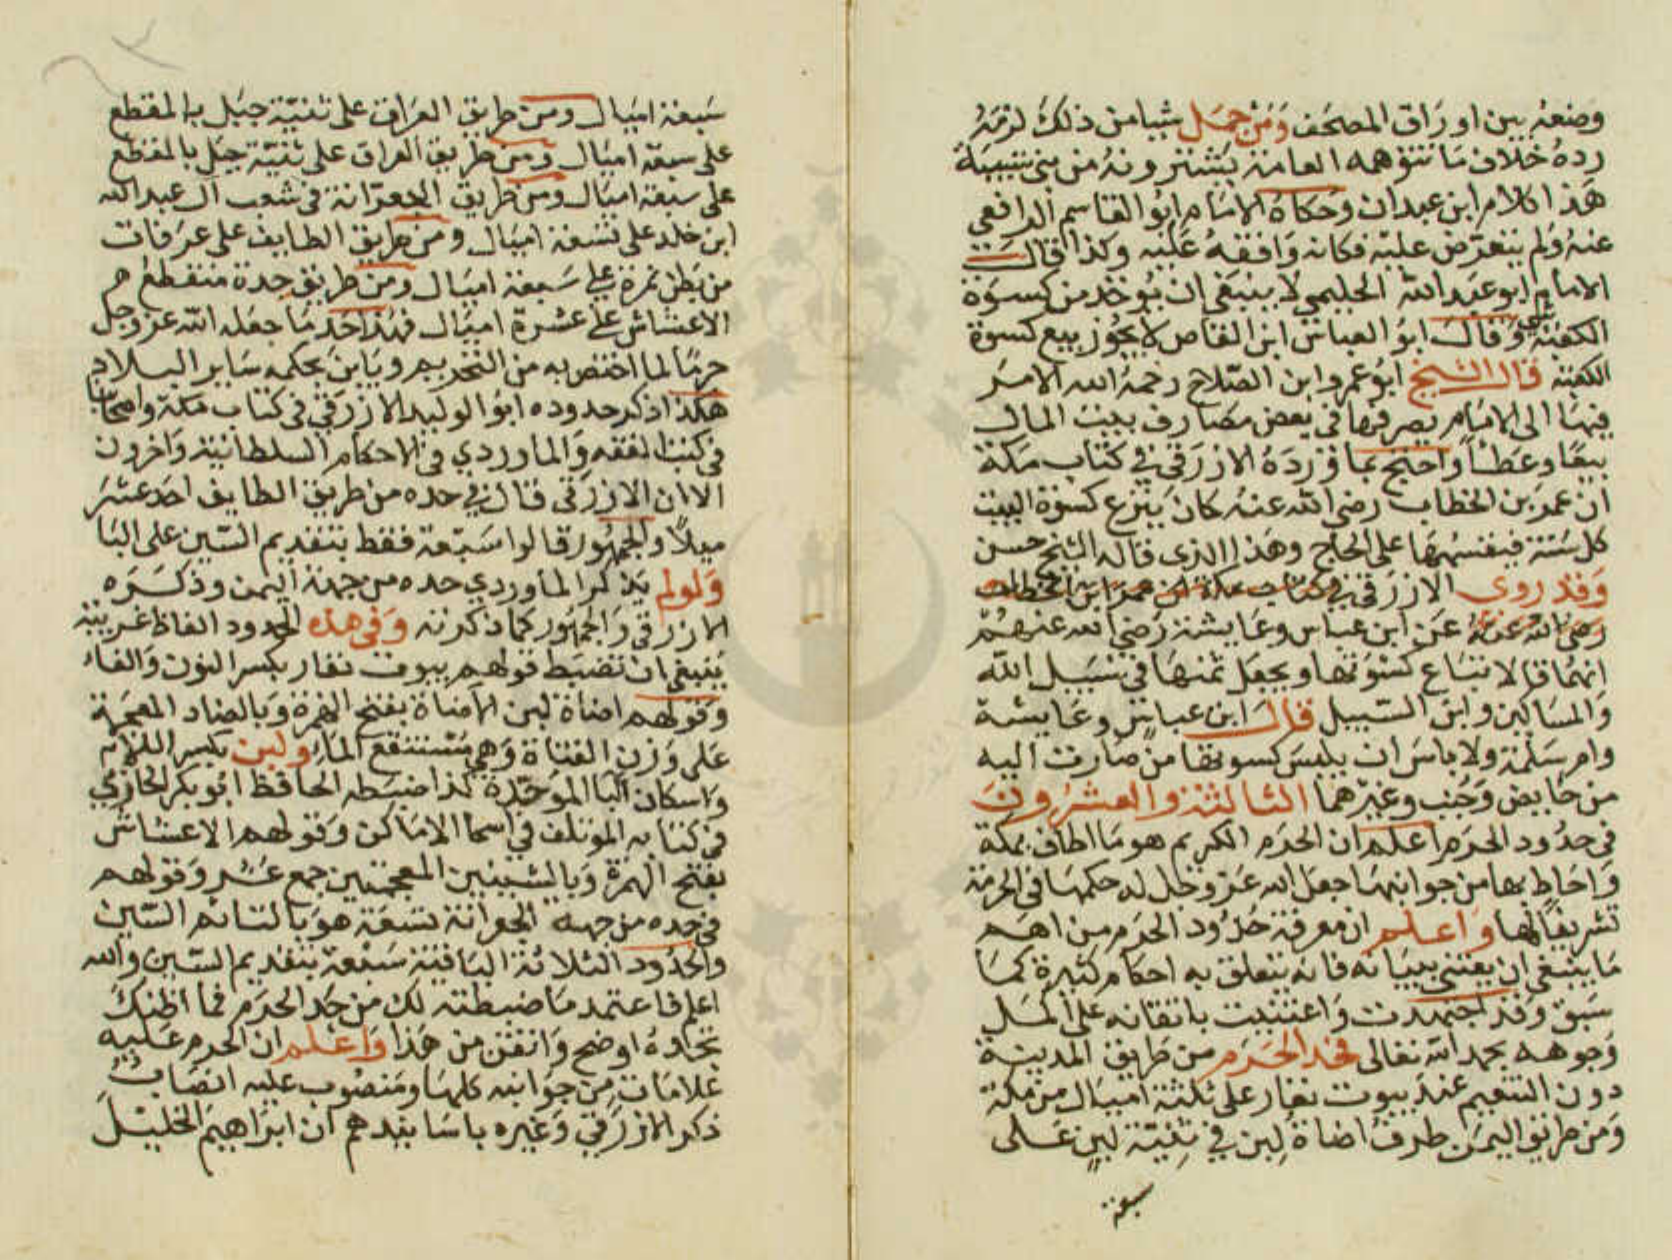 وضعه بين اوراق المصحف ومن حمل شيا من ذلك لزمه
رده خلاف ما تتوهمه العامة يشترونه من بنى شيبة
هذا كلام ابن عبدان وحكاه الامام ابو القاسم الرافعي
عنه ولم يتعرض عليه فكانه وافقه عليه وكذا قالت
الامام ابو عبد الله الحليمي لا ينبغى ان يوخذ من كسوة
الكعبة شي وقال ابو العباس ابن القاص لا يجوز بيع كسوة
الكعبة قال الشيخ ابو عمرو ابن الصلاح رحمه الله الامر
فيها الى الامام يصرفها في بعض مصارف بيت المال
بيعا وعطا واحتج بما ورده الازرقي في كتاب مكة
ان عمر بن الخطاب رضى الله عنه كان ينزع كسوة البيت
كل سنة فيقسمها على الحاج وهذا الذى قاله الشيخ حسن
وقد روى الازرقي في كتاب مكة ان عمر ابن الخطاب
رضي الله عنه عن ابن عباس وعايشة رضى الله عنهم
انهما قالا تباع كسوتها ويجعل ثمنها في سبيل الله
والمساكين وابن السبيل قال ابن عباس وعايشة
وام سلمة ولا باس ان يلبس كسوتها من صارت اليه
من حايض وجنب وغيرهما الثالثة والعشرون
في حدود الحرم اعلم ان الحرم الكريم هو ما اطاف بمكة
واحاط بها من جوانبها جعل الله عز وجل له حكمها فى الحرمة
تشريفا لها واعلم ان معرفة حدود الحرم من اهم
ما ينبغى ان يعتنى ببيانه فانه يتعلق به احكام كثيرة كما
سبق وقد اجتهدت واعتنيت باتقانه على اكمل
وجوهه بحمد الله تعالى فحد الحرم من طريق المدينة
دون التنعيم عند بيوت نفار على ثلثة اميال من مكة
ومن طريق اليمن طرف اضاة لبن في ثنية لبن على
سبعة
سبعة اميال ومن طريق العراق على ثنية جبل بالمقطع
على سبعة اميال ومن طريق العراق على ثنية جبل بالمقطع
على سبعة اميال ومن طريق الجعرانة في شعب ال عبد الله
ابن خلد على تسعة اميال ومن طريق الطايف على عرفات
من بطن نمرة على سبعة اميال ومن طريق جدة منقطع
الاعشاش على عشرة اميال فهذا حد ما جعله الله عز وجل
حرما لما اختص به من التحريم وباين بحكمه ساير البلاد
هكذا ذكر حدوده ابو الوليد الازرقي في كتاب مكة واصحابنا
في كتب الفقه والماوردي في الاحكام السلطانية واخرون
الا ان الازرقى قال في حده من طريق الطايف احد عشر
ميلا والجمهور قالوا سبعة فقط بتقديم السين على البا
ولو لم يذكر الماوردي حده من جهة اليمن وذكره
الازرقي والجمهور كما ذكرته وفى هذه الحدود الفاظ غريبة
ينبغى ان تضبط قولهم بيوت نفار بكسر النون والفاء
وقولهم اضاة لبن الاضاة بفتح الهمزة وبالضاد المعجمة
على وزن القناة وهي مستنقع الماء ولبن بكسر اللام
واسكان البا الموحدة كذا ضبطه الحافظ ابو بكر الحازمي
في كتابه المؤتلف في اسما الاماكن وقولهم الاعشاش
بفتح الهمزة وبالشينين المعجمتين جمع عش وقولهم
في حده من جهة الجعرانة تسعة هو بالتا ثم السين
والحدود الثلاثة الباقية سبعة بتقديم السين والله
اعلم فاعتمد ما ضبطته لك من حد الحرم فما اظنك
تجده اوضح واتقن من هذا واعلم ان الحرم عليه
علامات من جوانبه كلها ومنصوب عليه انصاب
ذكر الازرقي وغيره باسانيدهم ان ابراهيم الخليل